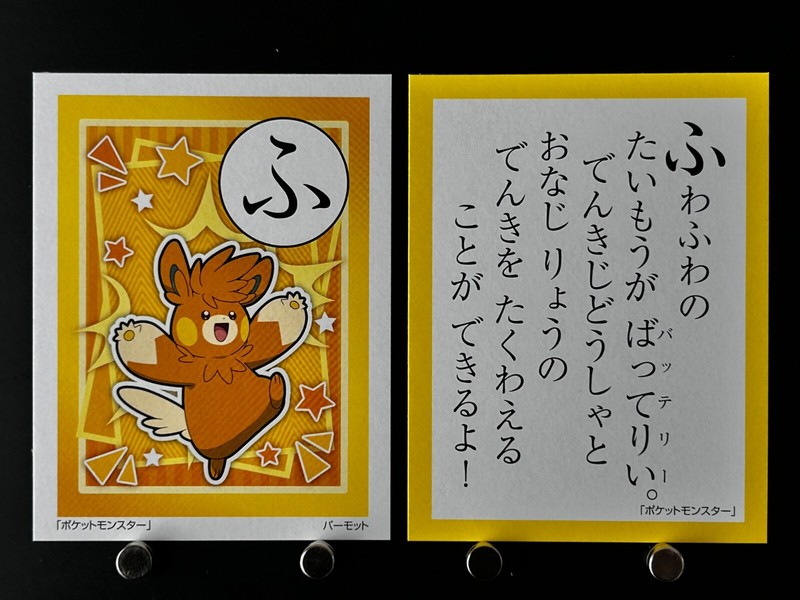 ふ
「ポケットモンスター」
パーモット
ふわふわの
たいもうが ばってりい。
バッテリー
でんきじどうしゃと
おなじ りょうの
でんきを たくわえる
ことが できるよ！
「ポケットモンスター」